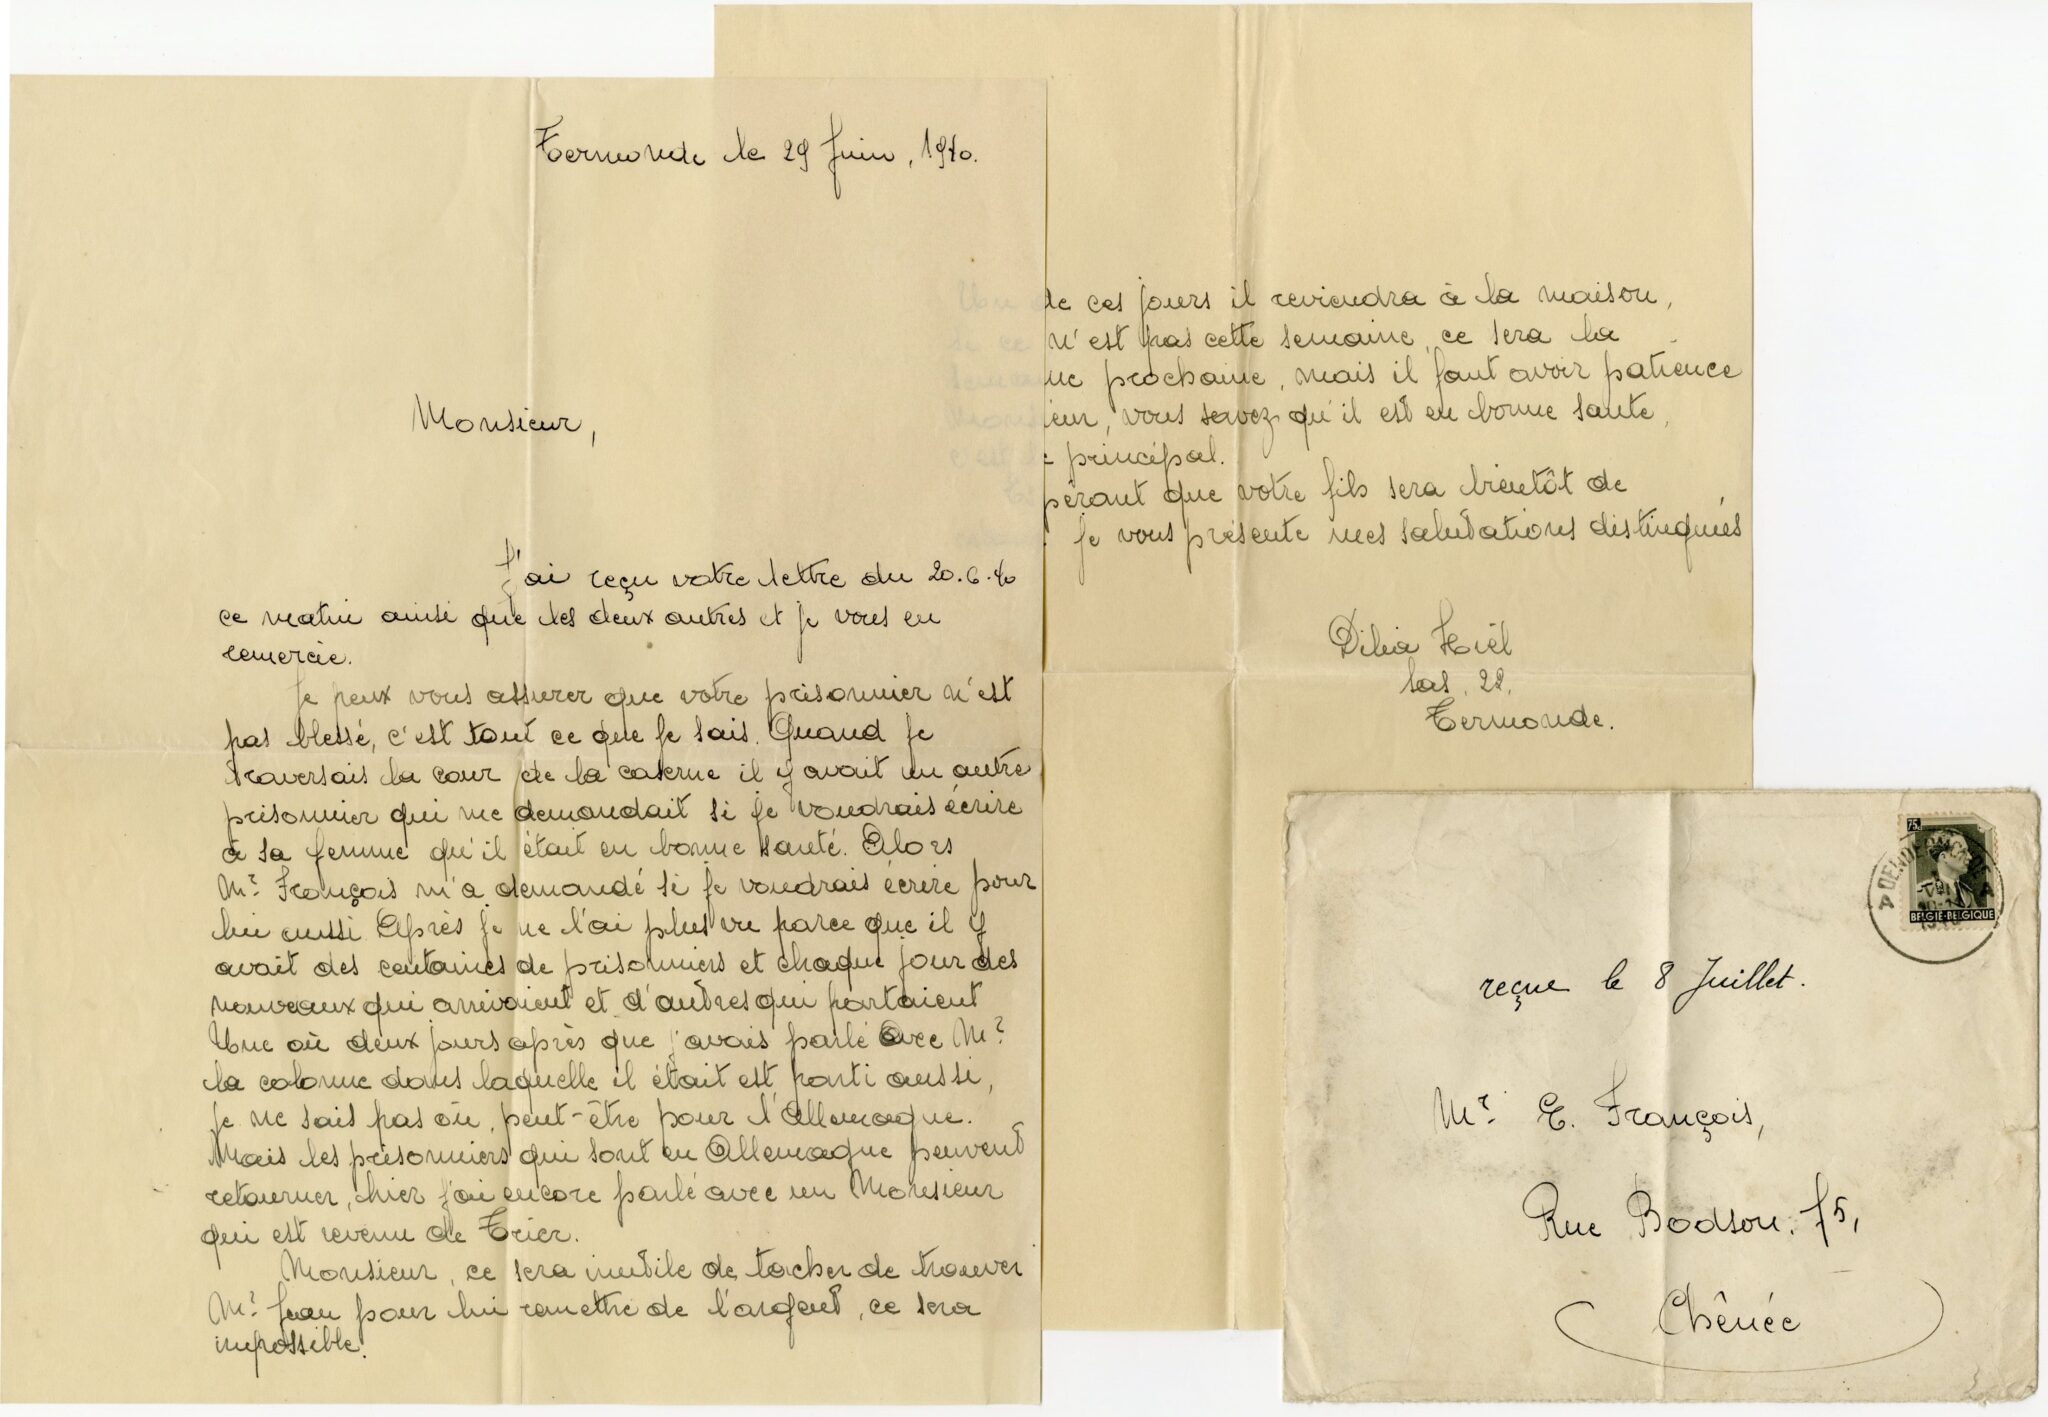 Termonde le 29 Juin, 1940.
Monsieur,
J'ai reçu votre lettre du 20.6.40
ce matin ainsi que les deux autres et je vous en
remercie.
Je peux vous assurer que votre prisonnier n'est
pas blessé, c'est tout ce que je sais. Quand je
traversais la cour de la caserne il y avait un autre
prisonnier qui me demandait si je voudrais écrire
à sa femme qu'il était en bonne santé. Alors
Mr François m'a demandé si je voudrais écrire pour
lui aussi Après je ne l'ai plus vu parce que il y
avait des centaines de prisonniers et chaque jour des
nouveaux qui arrivaient et d'autres qui partaient
Une où deux jours après que j'avais parlé avec Mr
la colonne dans laquelle il était est parti aussi,
je ne sais pas où, peut-être pour l'Allemagne.
Mais les prisonniers qui sont en Allemagne peuvent
retourner, hier j'ai encore parlé avec un Monsieur
qui est revenu de Trier.
Monsieur, ce sera inutile de tacher de trouver
Mr Jean pour lui remettre de l'argent, ce sera
impossible.
Un de ces jours il reviendra à la maison,
si ce n'est pas cette semaine, ce sera la
semaine prochaine, mais il faut avoir patience
Monsieur, vous savez qu'il est en bonne santé,
c'est le principal.
Espérant que votre fils sera bientôt de
je vous présente mes salutations distinguées
Dilia Hiël
Sas, 22,
Termonde.
75c
BELGIE-BELGIQUE
reçue le 8 Juillet.
Mr E. François,
Rue Bodson, 75,
Chênée